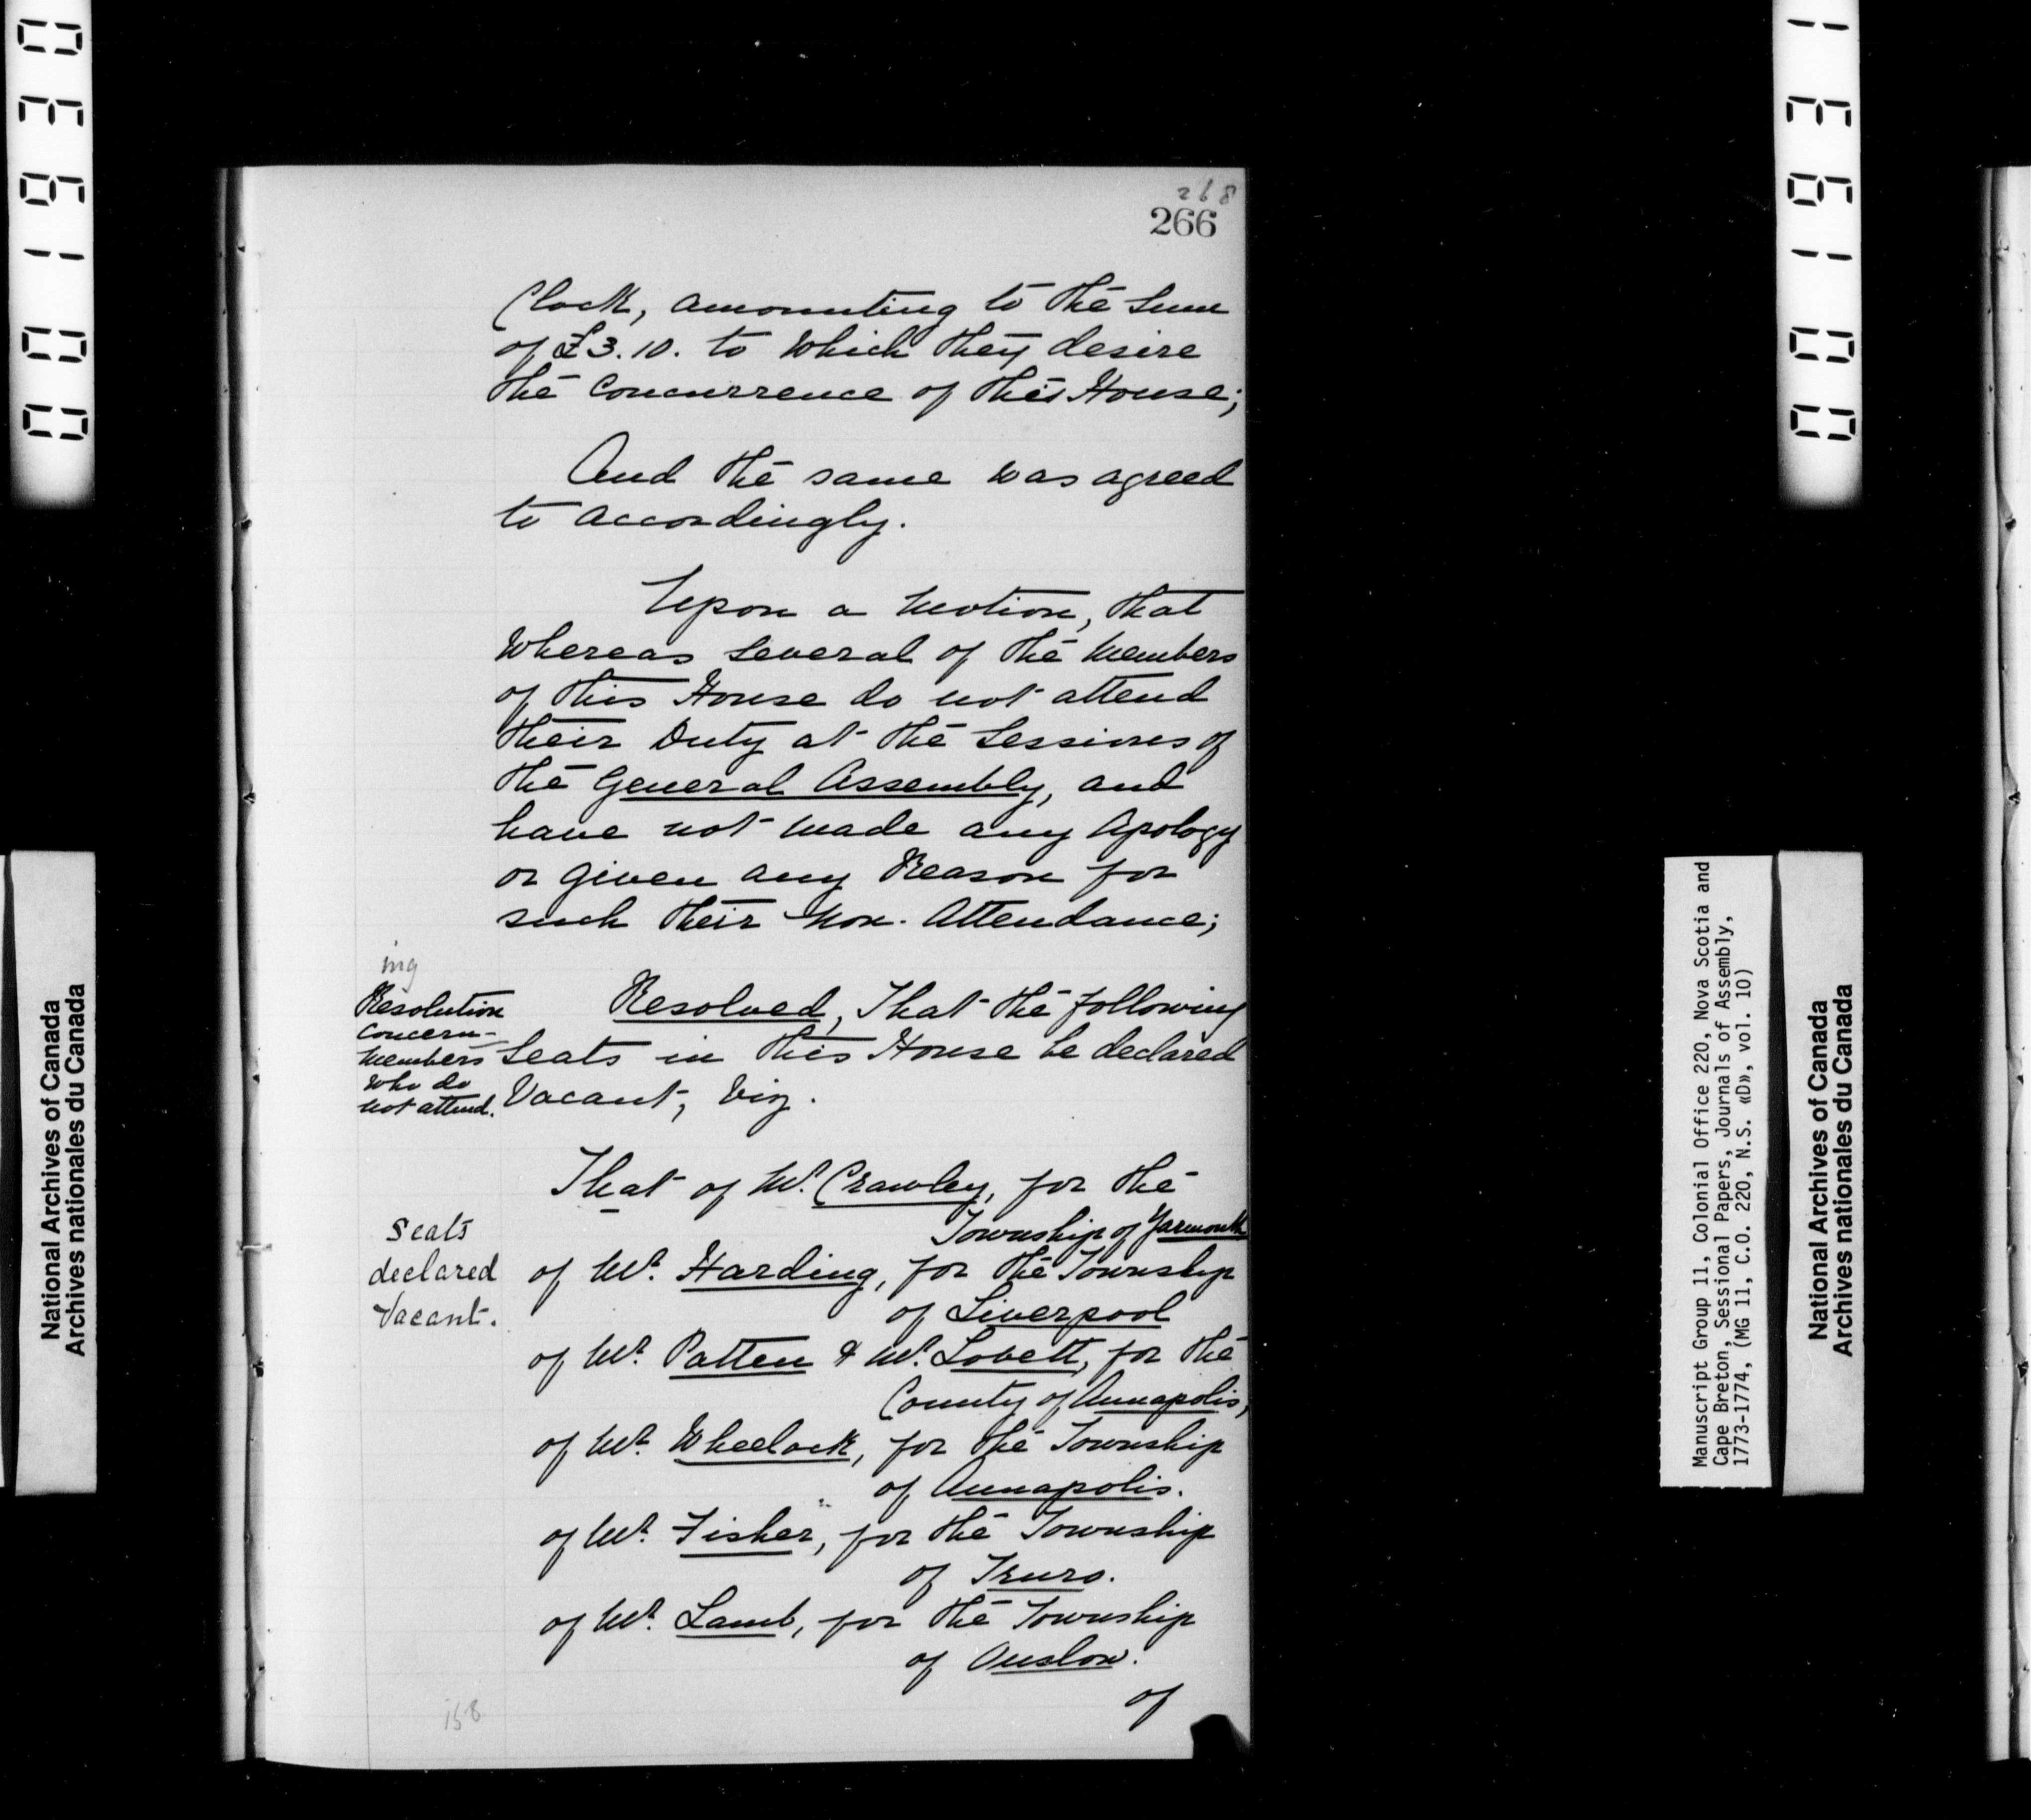 268
266
Clock, amounting to the Sum
of £3.10. to which they desire
the Concurrence of this House;
And the same was agreed
to accordingly.
Upon a Motion, that
Whereas Several of the Members
of this House do not attend
their Duty at the Sessions of
the General Assembly, and
have not made any Apology
or given any Reason for
such their Non-Attendance;
ing
Resolution
concern-
Members
who do
not attend.
Resolved, That the following
Seats in this House be declared
Vacant, Viz.
Seats
declared
Vacant.
That of Mr. Crawley, for the
Township of Yarmouth
of Mr. Harding, for the Township
of Liverpool
of Mr. Patten & Mr. Lovett, for the
County of Annapolis,
of Mr. Wheelock, for the Township
of Annapolis.
of Mr. Fisher, for the Township
of Truro.
of Mr. Lamb, for the Township
of Onslow.
of
158
National Archives of Canada
Archives nationales du Canada
Manuscript Group 11, Colonial Office 220, Nova Scotia and
Cape Breton, Sessional Papers, Journals of Assembly,
1773-1774, (MG 11, C.O. 220, N.S. «D», vol. 10)
National Archives of Canada
Archives nationales du Canada